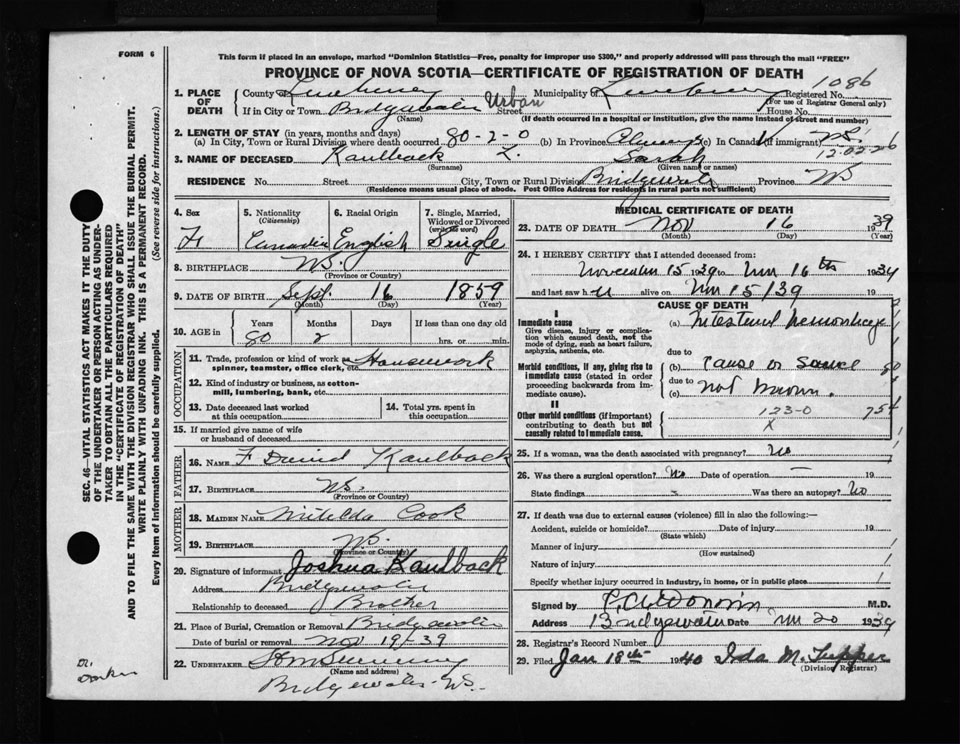 FORM 6
This form if placed in an envelope, marked "Dominion Statistics—Free, penalty for improper use $300," and properly addressed will pass through the mail "FREE"
PROVINCE OF NOVA SCOTIA—CERTIFICATE OF REGISTRATION OF DEATH
1. PLACE OF DEATH County of Lunenburg Municipality of Lunenburg Registered No. 1086
(For use of Registrar General only)
If in City or Town Bridgewater Urban Street House No.
(Name) (If death occurred in a hospital or institution, give the name instead of street and number)
2. LENGTH OF STAY (in years, months and days)
(a) In City, Town or Rural Division where death occurred 80-2-0 (b) In Province Always (c) In Canada (if immigrant)
3. NAME OF DECEASED Kaulback Z. Sarah
(Surname) (Given name or names)
RESIDENCE No. Street City, Town or Rural Division Bridgewater Province NS
(Residence means usual place of abode. Post Office Address for residents in rural parts not sufficient)
4. Sex F
5. Nationality (Citizenship) Canadian
6. Racial Origin English
7. Single, Married, Widowed or Divorced (write the word) Single
8. BIRTHPLACE NS.
(Province or Country)
9. DATE OF BIRTH Sept 16 1859
(Month) (Day) (Year)
10. AGE in Years Months Days If less than one day old
80 2 hrs. or min.
OCCUPATION
11. Trade, profession or kind of work as spinner, teamster, office clerk, etc. Housework
12. Kind of industry or business, as cotton-mill, lumbering, bank, etc.
13. Date deceased last worked at this occupation
14. Total yrs. spent in this occupation
15. If married give name of wife or husband of deceased
FATHER
16. NAME F David Kaulback
17. BIRTHPLACE NS.
(Province or Country)
MOTHER
18. MAIDEN NAME Matilda Cook
19. BIRTHPLACE NS.
(Province or Country)
20. Signature of informant Joshua Kaulback
Address Bridgewater
Relationship to deceased Brother
21. Place of Burial, Cremation or Removal Bridgewater
Date of burial or removal Nov 19-39
22. UNDERTAKER
(Name and address)
Bridgewater NS.
MEDICAL CERTIFICATE OF DEATH
23. DATE OF DEATH Nov 16 1939
(Month) (Day) (Year)
24. I HEREBY CERTIFY that I attended deceased from:
November 15 1939 to Nov 16th 1939
and last saw her alive on Nov 15/39 19
CAUSE OF DEATH
I
Immediate cause
Give disease, injury or complication which caused death, not the mode of dying, such as heart failure, asphyxia, asthenia, etc.
(a) Intestinal hemorrhage
due to
Morbid conditions, if any, giving rise to immediate cause (stated in order proceeding backwards from immediate).
(b) Cause or source
due to
(c) not known.
II
Other morbid conditions (if important) contributing to death but not causally related to immediate cause.
123-0
X
754
25. If a woman, was the death associated with pregnancy? No
26. Was there a surgical operation? No Date of operation — 19
State findings Was there an autopsy? No
27. If death was due to external causes (violence) fill in also the following:—
Accident, suicide or homicide? Date of injury 19
(State which)
Manner of injury
(How sustained)
Nature of injury
Specify whether injury occurred in industry, in home, or in public place
Signed by M.D.
Address Bridgewater Date Nov 20 1939
28. Registrar's Record Number
29. Filed Jan 18th 1940 Ida M. Tupper
(Division Registrar)
SEC. 46—VITAL STATISTICS ACT MAKES IT THE DUTY OF THE UNDERTAKER OR PERSON ACTING AS UNDERTAKER TO OBTAIN ALL THE PARTICULARS REQUIRED IN THE "CERTIFICATE OF REGISTRATION OF DEATH" AND TO FILE THE SAME WITH THE DIVISION REGISTRAR WHO SHALL ISSUE THE BURIAL PERMIT.
WRITE PLAINLY WITH UNFADING INK. THIS IS A PERMANENT RECORD.
Every item of information should be carefully supplied. (See reverse side for instructions.)